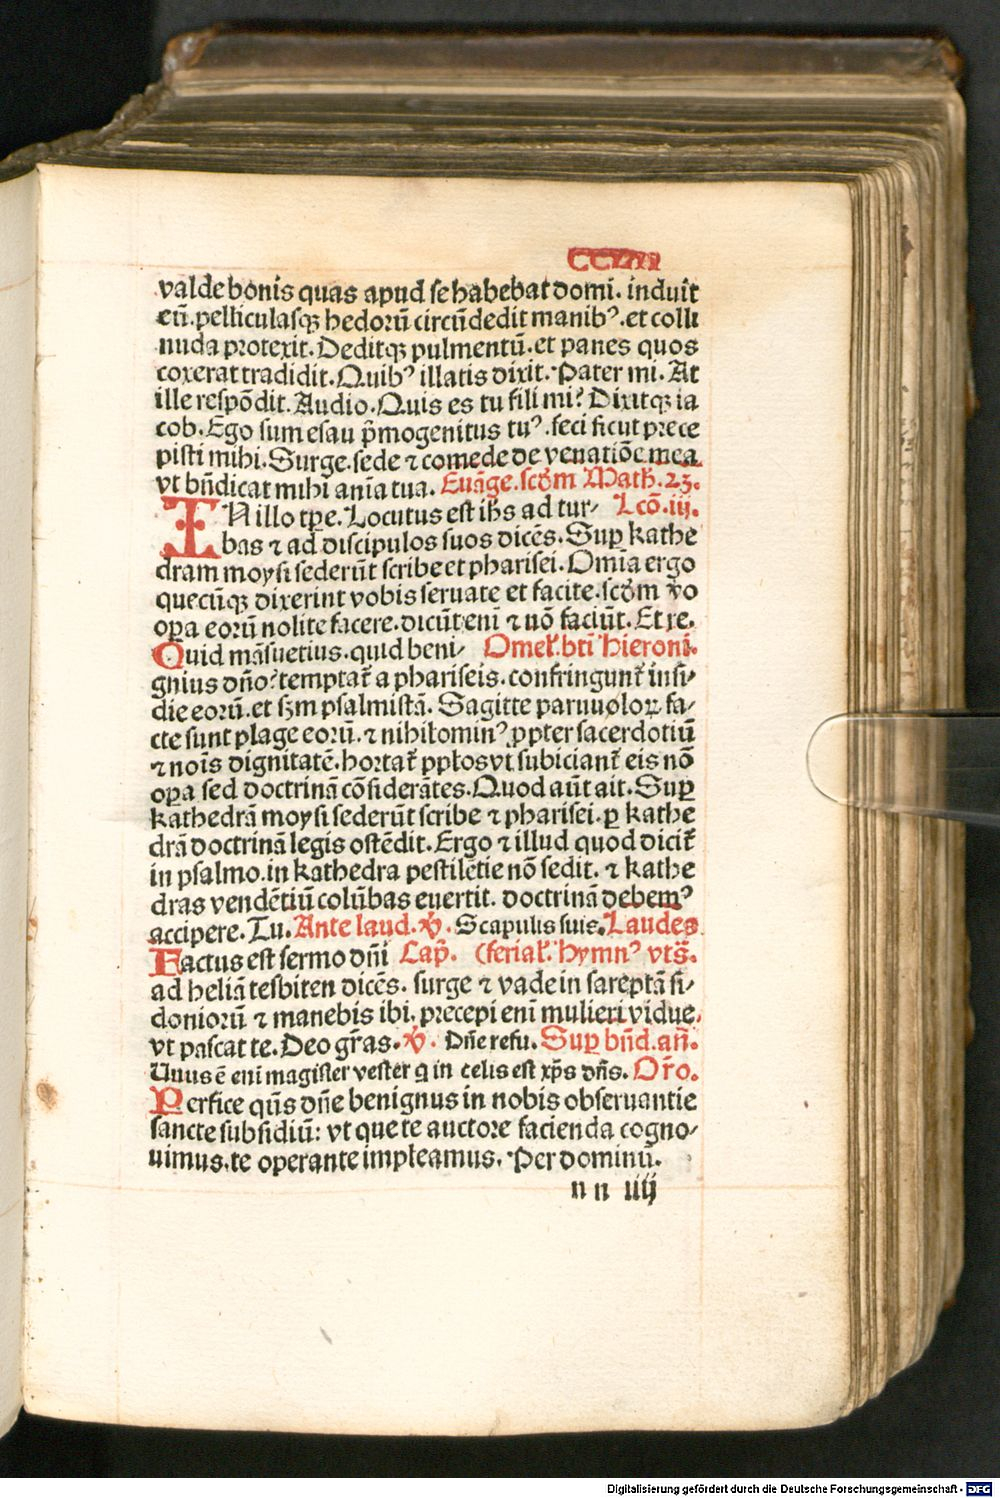 CCLiii
valde bonis quas apud se habebat domi. induit
eū. pelliculasqꝫ hedorū circūdedit manibꝰ. et colli
nuda protexit. Deditqꝫ pulmentū. et panes quos
coxerat tradidit. Quibꝰ illatis dixit. Pater mi. At
ille respōdit. Audio. Quis es tu fili mi? Dixitqꝫ ia
cob. Ego sum esau p̄mogenitus tuꝰ. feci sicut prece
pisti mihi. Surge. sede ⁊ comede de venatiōe mea
vt bn̄dicat mihi anīa tua. Euāge. scd̓m Math̓. 23.
IN illo tꝑe. Locutus est ih̄s ad tur⸗ Lcō. iij.
bas ⁊ ad discipulos suos dicēs. Suꝑ kathe
dram moysi sederūt scribe et pharisei. Omīa ergo
quecūqꝫ dixerint vobis seruate et facite. scd̓m vo
oꝑa eorū nolite facere. dicūt enī ⁊ nō faciūt. Et re.
Quid māsuetius. quid beni⸗ Omel̓. bt̄i Hieroni.
gnius dño? temptat̄ a phariseis. confringunt̄ insi⸗
die eorū. et sꝫm psalmistā. Sagitte paruuloꝝ fa⸗
cte sunt plage eorū. ⁊ nihilominꝰ ꝓpter sacerdotiū
⁊ noīs dignitatē. hortat̄ pplos vt subiciant̄ eis nō
oꝑa sed doctrinā cōsiderātes. Quod aūt ait. Suꝑ
kathedrā moysi sederūt scribe ⁊ pharisei. ꝑ kathe
drā doctrinā legis ostēdit. Ergo ⁊ illud quod dicit̄
in psalmo. in kathedra pestilētie nō sedit. ⁊ kathe
dras vendētiū colūbas euertit. doctrinā debemꝰ
accipere. Tu. Ante laud. ℣. Scapulis suis. Laudes
Factus est sermo dn̄i Cap̄. (ferial̓. Hymnꝰ vts̄.
ad heliā tesbiten dicēs. surge ⁊ vade in sareptā si⸗
doniorū ⁊ manebis ibi. precepi enī mulieri vidue.
vt pascat te. Deo gr̄as. ℣. Dn̄e refu. Suꝑ bn̄d. an̄.
Unus ē enī magister vester q in celis est xp̄s dn̄s. Or̄o.
Perfice qūs dn̄e benignus in nobis obseruantie
sancte subsidiū: vt que te auctore facienda cogno⸗
uimus. te operante impleamus. Per dominū.
n n iiij
Digitalisierung gefördert durch die Deutsche Forschungsgemeinschaft - DFG